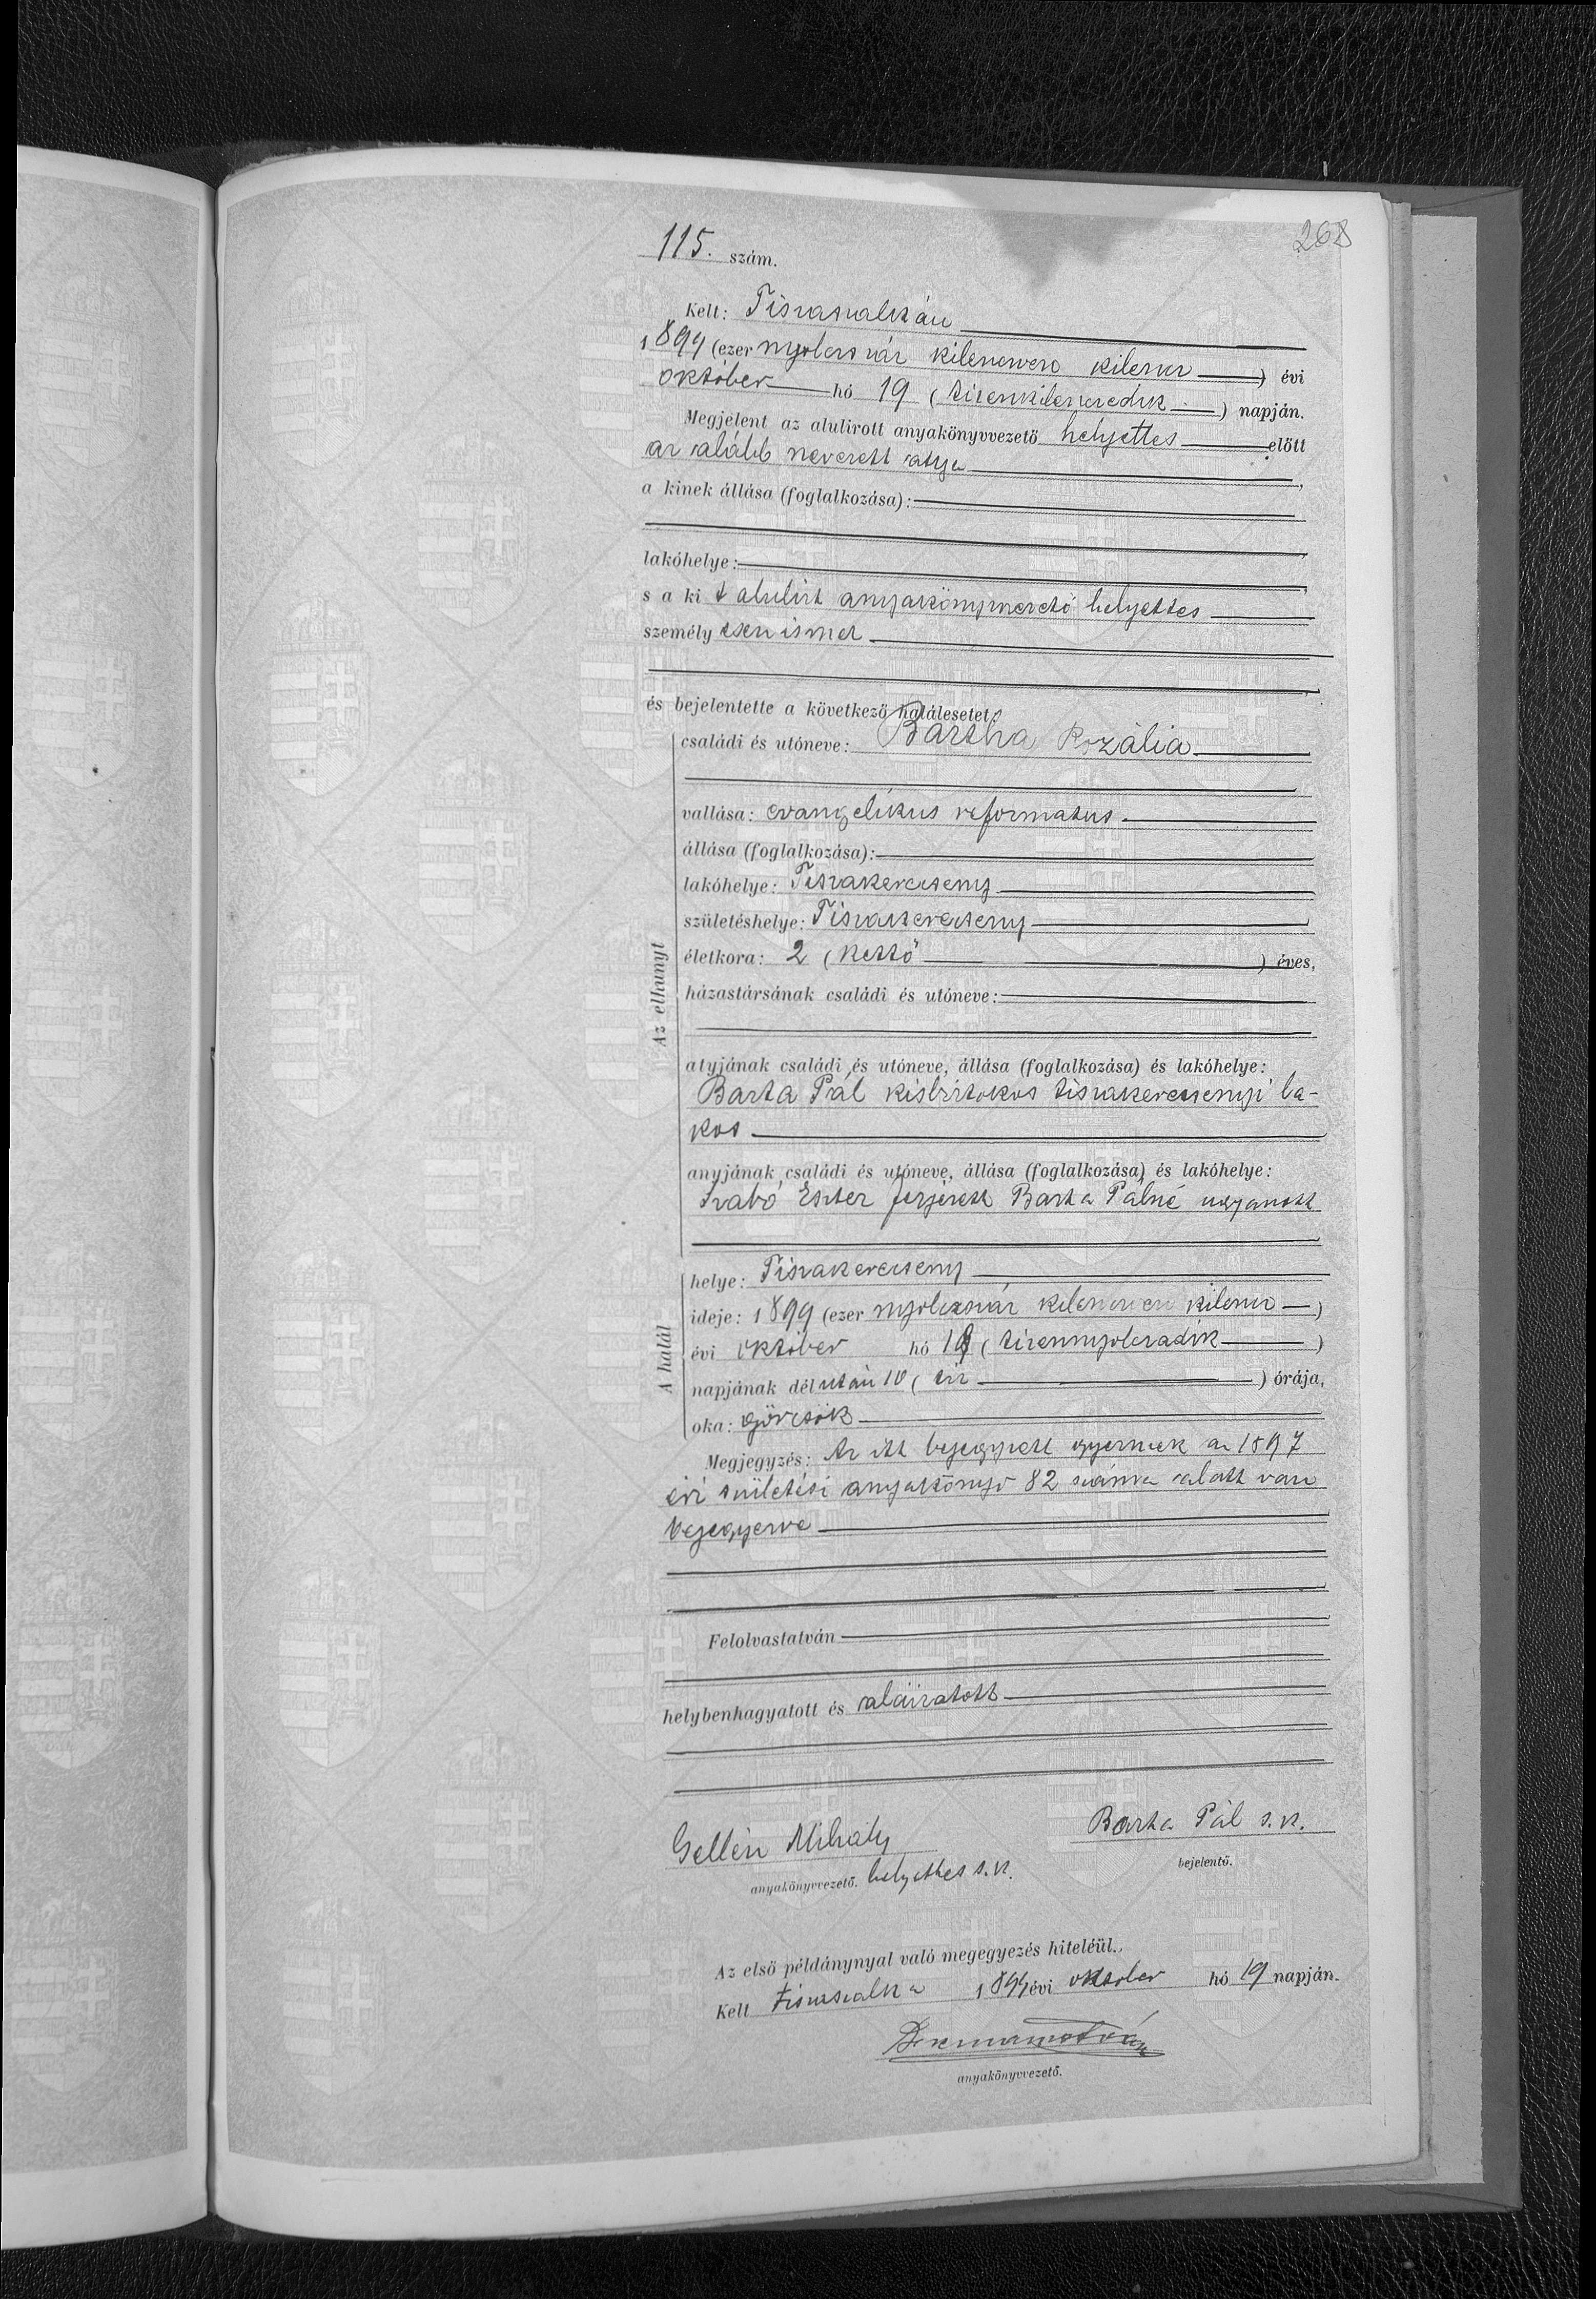 268
115. szám.
Kelt: Tiszaszalkán
1899 (ezer nyolczszáz kilenczven kilencz) évi
október hó 19 (tizenkilenczedik) napján.
Megjelent az alulirott anyakönyvvezető helyettes előtt
az alább nevezett atya,
a kinek állása (foglalkozása):
lakóhelye:
s a kit alulirt anyakönyvvezető helyettes
személyesen ismer
és bejelentette a következő halálesetet:
Az elhunyt
családi és utóneve: Bartha Rozália
vallása: evangelikus reformatus
állása (foglalkozása):
lakóhelye: Tiszakerecseny
születéshelye: Tiszakerecseny
életkora: 2 (kettő) éves,
házastársának családi és utóneve:
atyjának családi és utóneve, állása (foglalkozása) és lakóhelye:
Barta Pál kisbirtokos tiszakerecsenyi la-
kos
anyjának családi és utóneve, állása (foglalkozása) és lakóhelye:
Szabó Eszter férjezett Barta Pálné ugyanott
A halál
helye: Tiszakerecseny
ideje: 1899 (ezer nyolczszáz kilenczven kilencz)
évi október hó 18 (tizennyolczadik)
napjának délután 10 (tiz) órája,
oka: görcsök
Megjegyzés: Az itt bejegyzett gyermek az 1897
évi születési anyakönyv 82 száma alatt van
bejegyezve
Felolvastatván
helybenhagyatott és aláiratott
Gellén Mihály
anyakönyvvezető. helyettes s.k.
Barta Pál s.k.
bejelentő.
Az első példánynyal való megegyezés hiteléül.
Kelt Tiszaszalka 1899 évi október hó 19 napján.
anyakönyvvezető.